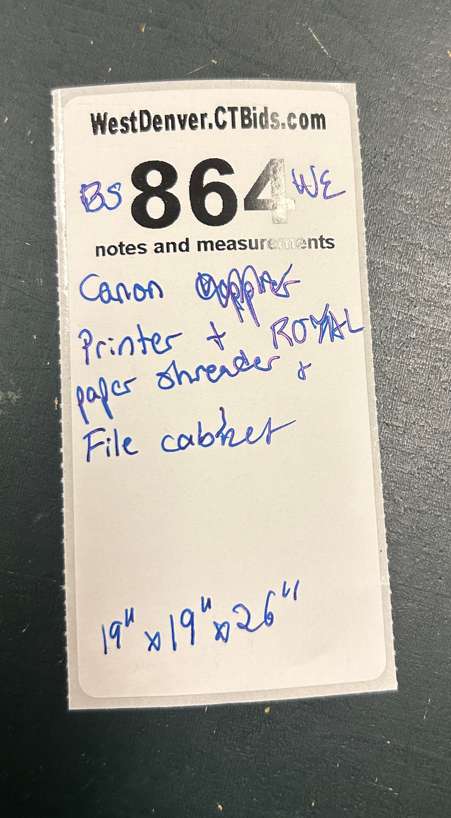 WestDenver.CTBids.com
BS 864 WE
notes and measurements
Canon
Printer + ROYAL
paper shreader +
File cabinet
19" x 19" x 26"